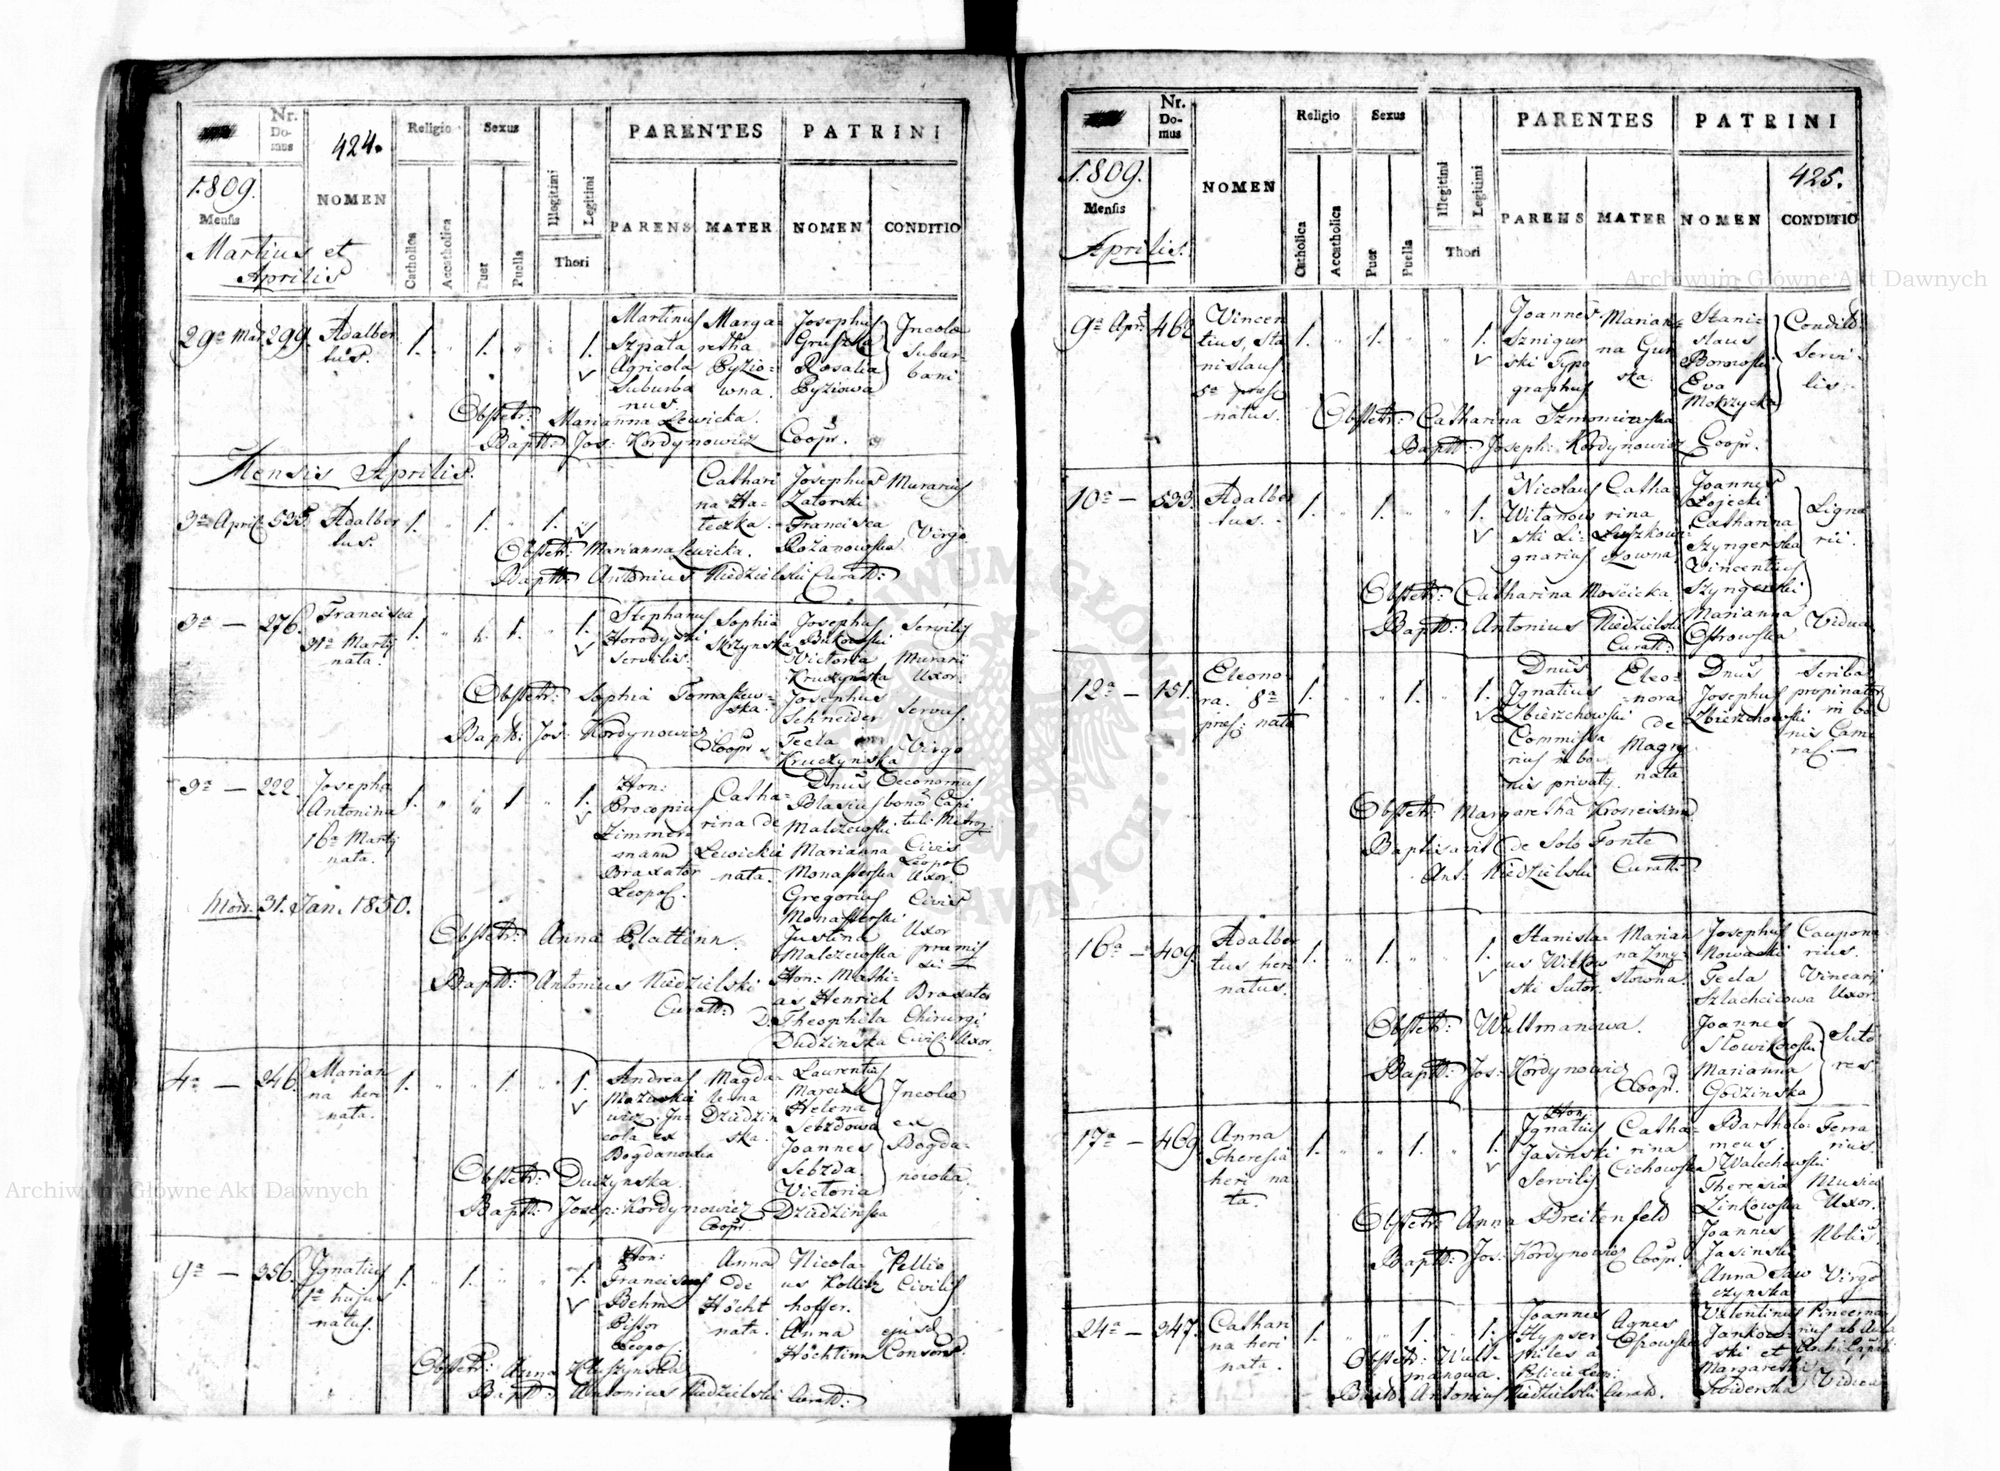 Nr. Domus
424.
Religio
Sexus
PARENTES
PATRINI
1809.
Mensis
NOMEN
Catholica
Accatholica
Puer
Puella
Illegitimi
Legitimi
Thori
PARENS
MATER
NOMEN
CONDITIO
Martius et
Aprilis
29a Mar. 299. Adalber
tus.
1. 1. 1.
Martinus
Szpala
Agricola
Suburba
nus
Marga-
retha
Pyzio-
wna.
Josephus
Gruszka
Rosalia
Pyziowa
Incolae
Subur
bani
Obstetr: Marianna Lewicka.
Bapt: Jos: Kordynowicz Coopr.
Mensis Aprilis.
3a April 535. Adalber
tus.
1. 1. 1.
Cathari
na Ha-
teczka.
Josephus
Zatorski
Francisca
Rożanowska
Murarius
Virgo
Obstetr: Marianna Lewicka.
Bapt: Antonius Niedzielski Curatt:
3a — 276. Francisca
31a Martij
nata.
1. 1. 1.
Stephanus
Horodyski
Servilis.
Sophia
Skrzynska
Josephus
Bukowski
Victoria
Kruczynska
Josephus
Schneider
Tecla
Kruczynska
Servilis
Murarii
Uxor.
Servus.
Virgo
Obstetr: Sophia Tomaszew-
ska.
Bapt: Jos: Kordynowicz
Coopr
3a — 222. Josepha
Antonina
16a Martij
nata.
1. 1. 1.
Hon:
Procopius
Zimmer
mann
Braxator
Leopol.
Catha-
rina de
Lewickie
nata.
Dnus
Blasius
Malczewski
Marianna
Monasterska
Gregorius
Monasterski
Justina
Malczewska
Hon: Mathi-
as Henrich
D. Theophila
Dudzinska
Oeconomus
bonor Capi
tuli Metrop.
Civis
Leopol
Uxor.
Civis
Uxor
praemis
si
Braxator
Chirurgi
Civis: Uxor.
Mort. 31. Jan. 1850.
Obstetr: Anna Plattönn.
Bapt: Antonius Niedzielski
Curatt:
4a — 246. Marian
na heri
nata.
1. 1. 1.
Andreas
wicz In-
cola ex
Bogdanowka
Magda-
lena
Dzudzin
ska.
Laurentius
Helena
Sebzdowa
Joannes
Sebzda
Victoria
Dzudzinska
Incolae
ex
Bogda-
nowka
Obstetr: Duczynska.
Bapt: Josep: Kordynowicz
Coopr.
9a — 356. Ignatius
1a hujus
natus.
1. 1. 1.
Hon:
Franciscus
Behm
Pistor
Leopol.
Anna
de
Höcht
nata.
Nicola-
us Kollitz
hoffer.
Anna
Höchtim
Pellio
Civilis
ejusd
Consors.
Obstetr: Anna Kluszynska
Bapt: Antonius Niedzielski Curatt:
Nr. Domus
Religio
Sexus
PARENTES
PATRINI
1809.
425.
Mensis
NOMEN
Catholica
Accatholica
Puer
Puella
Illegitimi
Legitimi
Thori
PARENS
MATER
NOMEN
CONDITIO
Aprilis.
9a Apr. 462 Vincen
tius, Sta
nislaus
5a praes
natus.
1. 1. 1.
Joannes
Sznigur
ski Typo
graphus
Marian-
na Gur
ska.
Stani-
slaus
Borowski
Eva
Mokrzycka
Condit:
Servi-
lis.
Obstetr: Catharina Szmoniewska
Bapt: Joseph: Kordynowicz Coopr.
10a — 533. Adalber
tus.
1. 1. 1.
Nicolaus
Witanow
ski Li-
gnarius
Catha
rina
Luszkowi
czowna.
Joannes
Łojecki
Catharina
Szyngerska
Vincentius
Szyngerski
Marianna
Ostrowska
Ligna
rii.
Vidua
Obstetr: Catharina Mościcka
Bapt: Antonius Niedzielski
Curatt:
12a — 151. Eleono
ra. 8a
praes: nata
1. 1. 1.
Dnus
Ignatius
Zbierzchowski
Commissa
rius in bo
nis privatis
Eleo-
nora
de
Magry
nata
Dnus
Josephus
Zbierzchowski
Scriba
propinator
in bo
nis Came
ral.
Obstetr: Margaretha Kroneisinn
Baptisavit de Solo Fonte
Ant. Niedzielski Curatt:
16a — 409. Adalber
tus heri
natus.
1. 1. 1.
Stanisla-
us Witkow
ski Sutor.
Marian
na Zmy-
słowna.
Josephus
Nowacki
Tecla
Szlachcicowa
Joannes
Słowikowski
Marianna
Godzinska
Caupona
rius.
Vinearij
Uxor.
Suto
res
Obstetr: Wultmanowa.
Bapt: Jos: Kordynowicz
Coopr.
17a — 469. Anna
Theresia
heri na
ta.
1. 1. 1.
Hon:
Ignatius
Jasinski
Servilis
Catha-
rina
Cichowska
Bartholo-
meus
Walechowski
Theresia
Zinkowska
Joannes
Jasinski
Anna Saw
czynska
Ferra
rius.
Musici
Uxor.
Nblis.
Virgo
Obstetr: Anna Breitenfeld
Bapt: Jos: Kordynowicz Coopr.
24a — 347. Cathari
na heri
nata.
1. 1. 1.
Joannes
Hypser
miles a
Policie Leop:
Agnes
Valentinus
Jankow-
ski et
Margaretha
Pincerna
Vidua
Obstetr: Wult-
manowa.
Bapt: Antonius Niedzielski Curatt.
Archiwum Główne Akt Dawnych
Archiwum Główne Akt Dawnych
ARCHIWUM GŁÓWNE AKT DAWNYCH